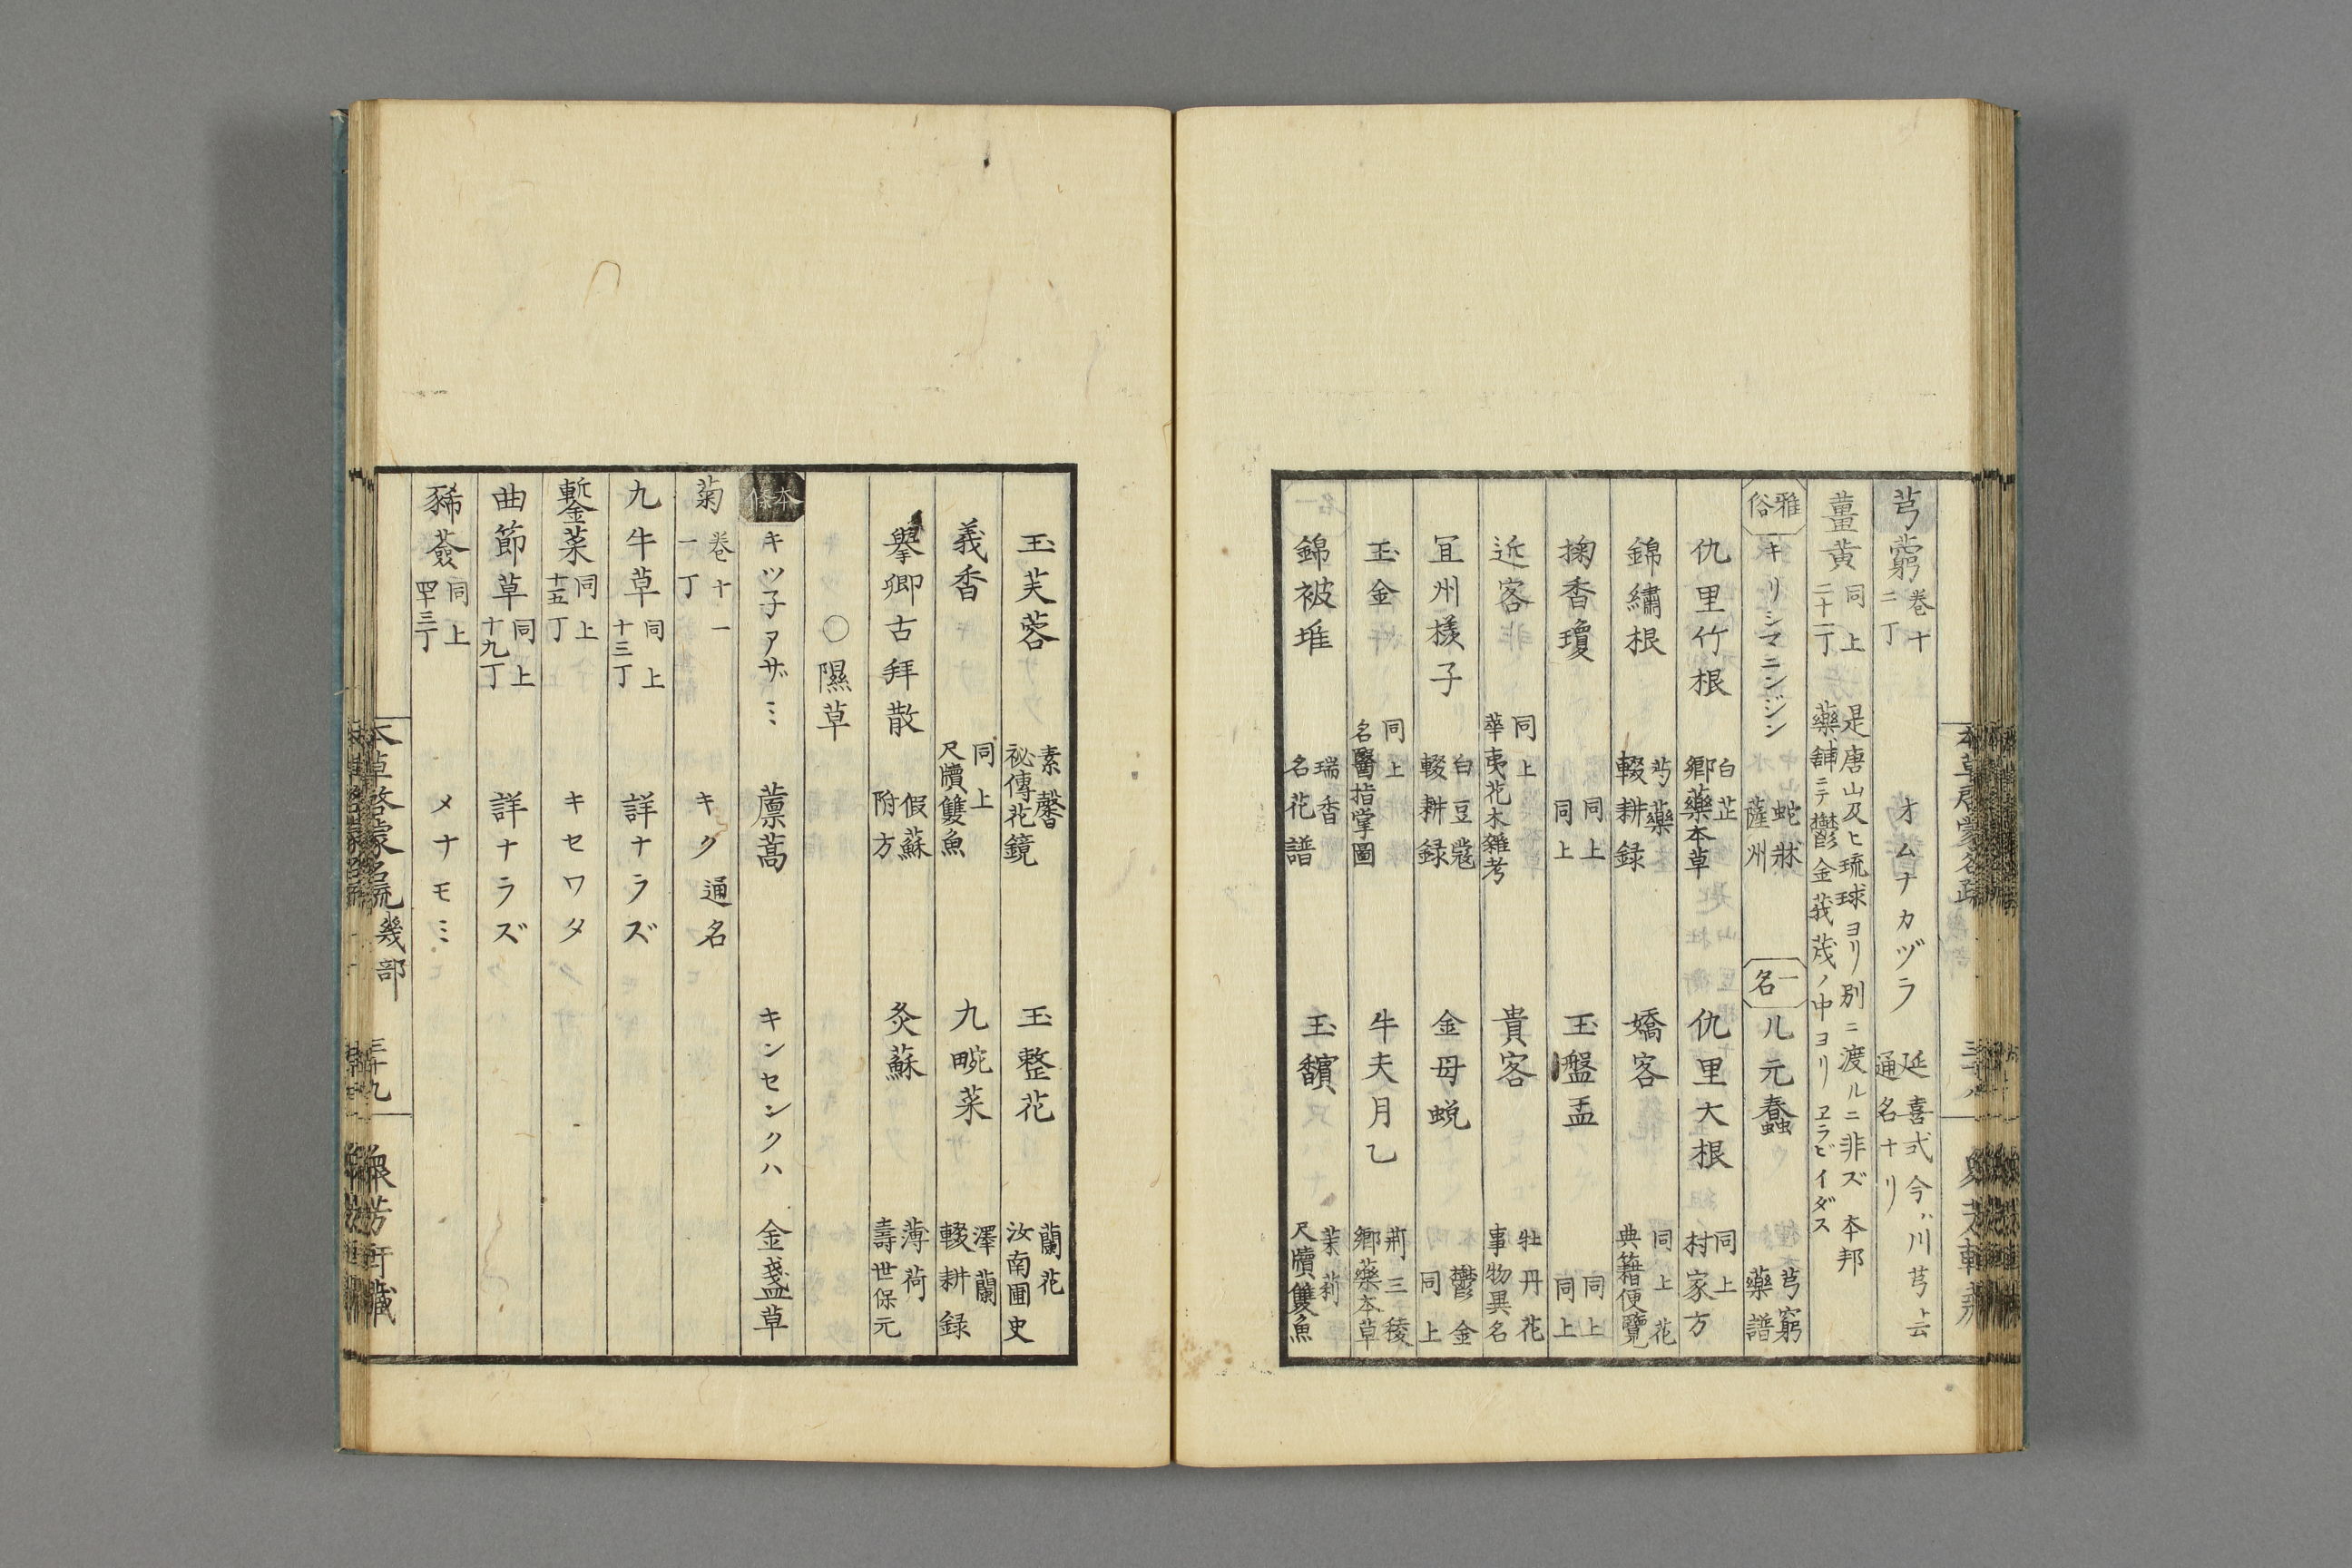 芎藭 巻十二丁 オムナカヅラ 延喜式今ハ川芎ト云通名ナリ
薑黄 同上二十二丁 是唐山及ヒ琉球ヨリ別ニ渡ルニ非ズ本邦藥舗ニテ鬱金莪茂ノ中ヨリヱラビイダス
雅俗 キリシマニンジン 蛇牀薩州 一名 兒元蠢 芎窮藥譜
仇里竹根 白芷郷藥本草 仇里大根 同上村家方
錦繡根 芍藥輟耕録 嬌客 同上花典籍便覽
掬香瓊 同上同上 玉盤盂 同上同上
近客 同上華夷花木雜考 貴客 牡丹花事物異名
冝州樣子 白豆蔻輟耕録 金母蛻 鬱金同上
玉金 同上名醫指掌圖 牛夫月乙 荊三稜郷藥本草
錦被堆 瑞香名花譜 玉馪 茉莉尺牘雙魚
玉芙蓉 素馨祕傳花鏡 玉整花 蘭花汝南圃史
義香 同上尺牘雙魚 九畹菜 澤蘭輟耕録
擧卿古拜散 假蘇附方 炙蘇 薄荷壽世保元
〇隰草
本條 キツ子アザミ 薫蒿 キンセンクハ 金盞草
菊 巻十一一丁 キク 通名
九牛草 同上十三丁 詳ナラズ
菨菜 同上十五丁 キセワタ
曲節草 同上十九丁 詳ナラズ
豨薟 同上四十三丁 メナモミ
本草啓蒙名疏 幾部 三十九 衆芳軒藏